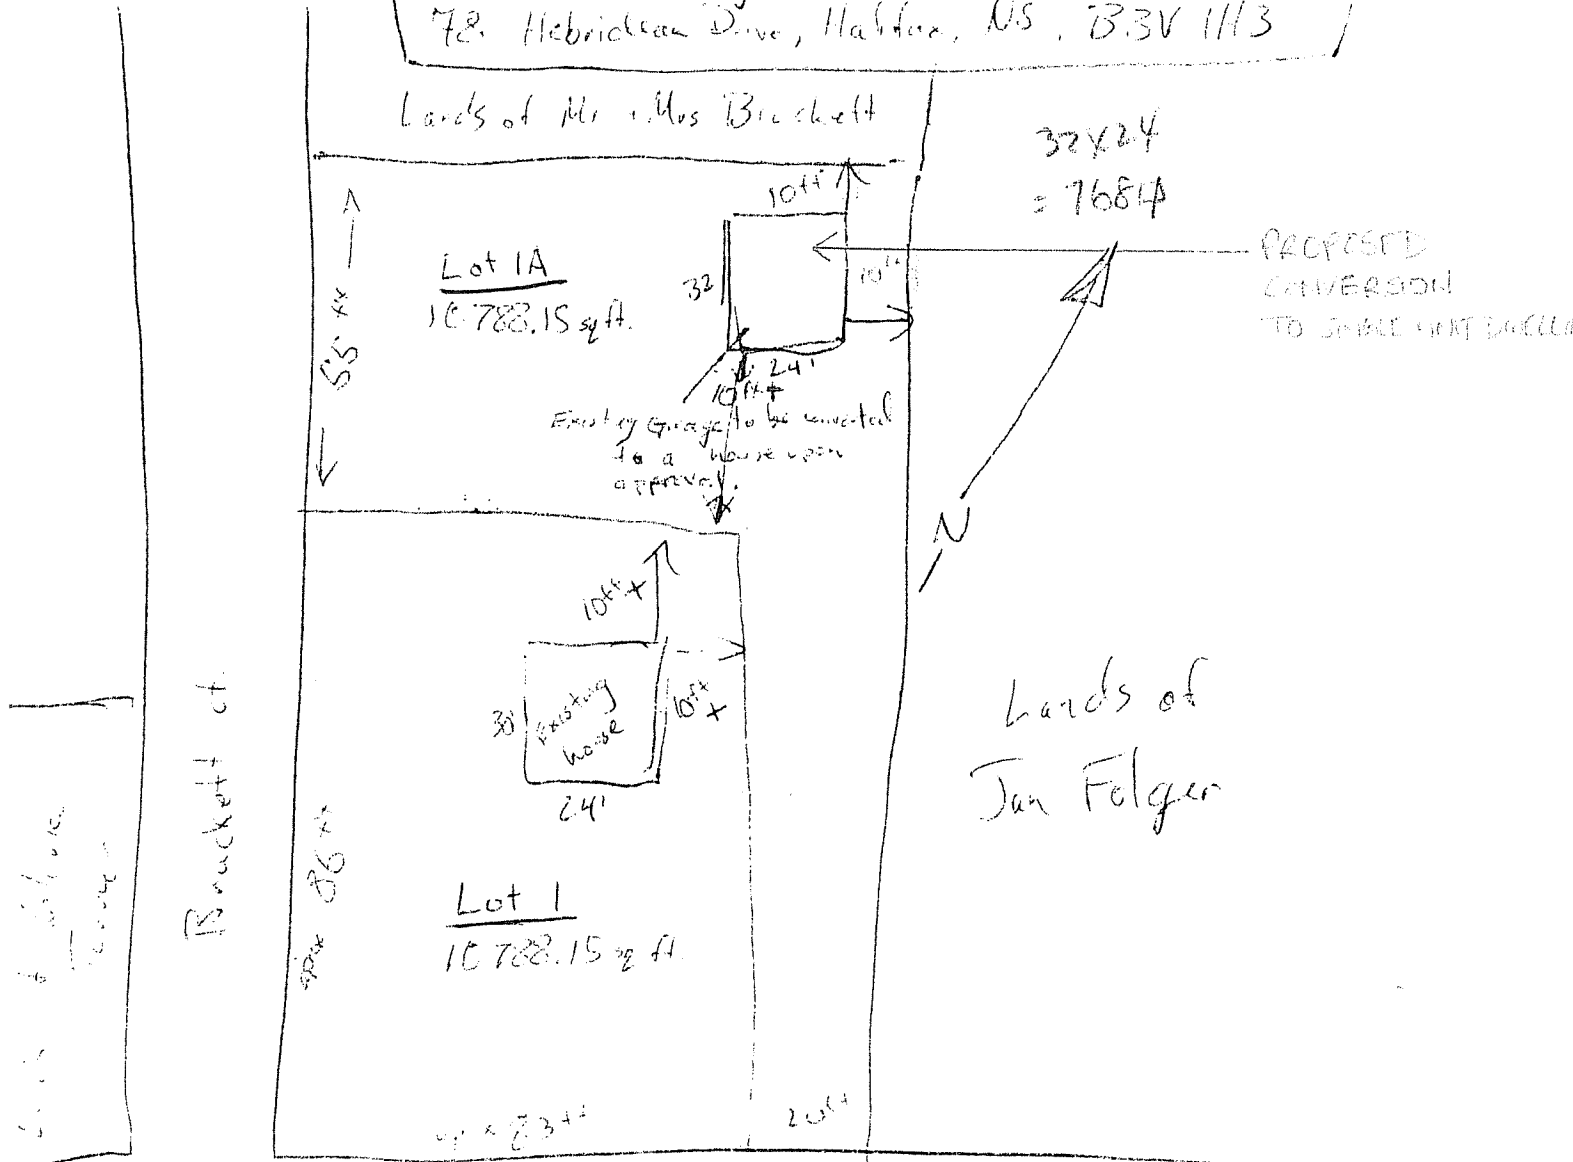 78 Hebridean Drive, Halifax, NS. B3V 1H3
Lands of Mr + Mrs Brackett
32x24
= 768ф
10ft
PROPOSED
CONVERSION
TO SINGLE UNIT
Lot 1A
10 788.15 sq ft.
32
10ft
55 ft
24'
10ft+
Existing Garage to be converted
to a house upon
approval.
N
10ft+
30'
Existing
house
10ft+
24'
Lands of
Jan Folger
Brackett ct.
86 ft
Lot 1
10 788.15 sq ft.
83ft
20ft